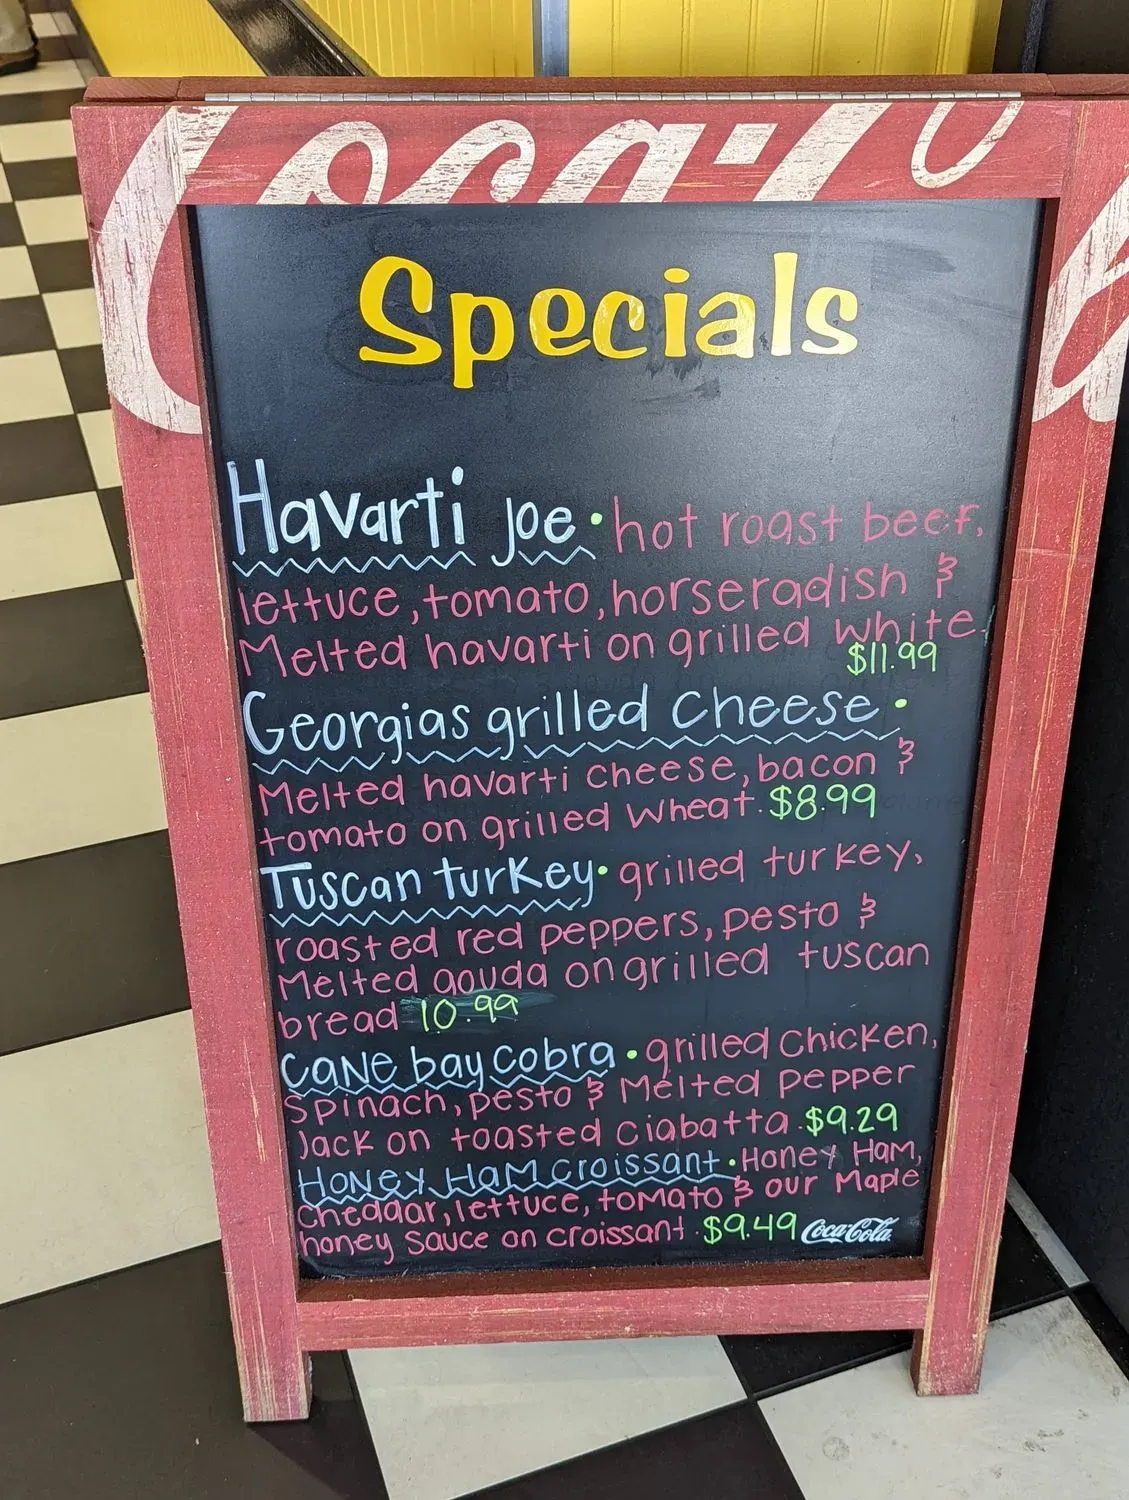 Coca-Co
Specials
Havarti Joe • hot roast beef,
lettuce, tomato, horseradish &
Melted havarti on grilled white.
$11.99
Georgias grilled cheese •
Melted havarti cheese, bacon &
tomato on grilled wheat. $8.99
Tuscan turkey • grilled turkey,
roasted red peppers, pesto &
Melted gouda on grilled tuscan
bread 10.99
Cane bay cobra • grilled chicken,
spinach, pesto & Melted pepper
Jack on toasted ciabatta. $9.29
Honey Ham croissant • Honey Ham,
cheddar, lettuce, tomato & our Maple
honey sauce on croissant. $9.49 Coca-Cola